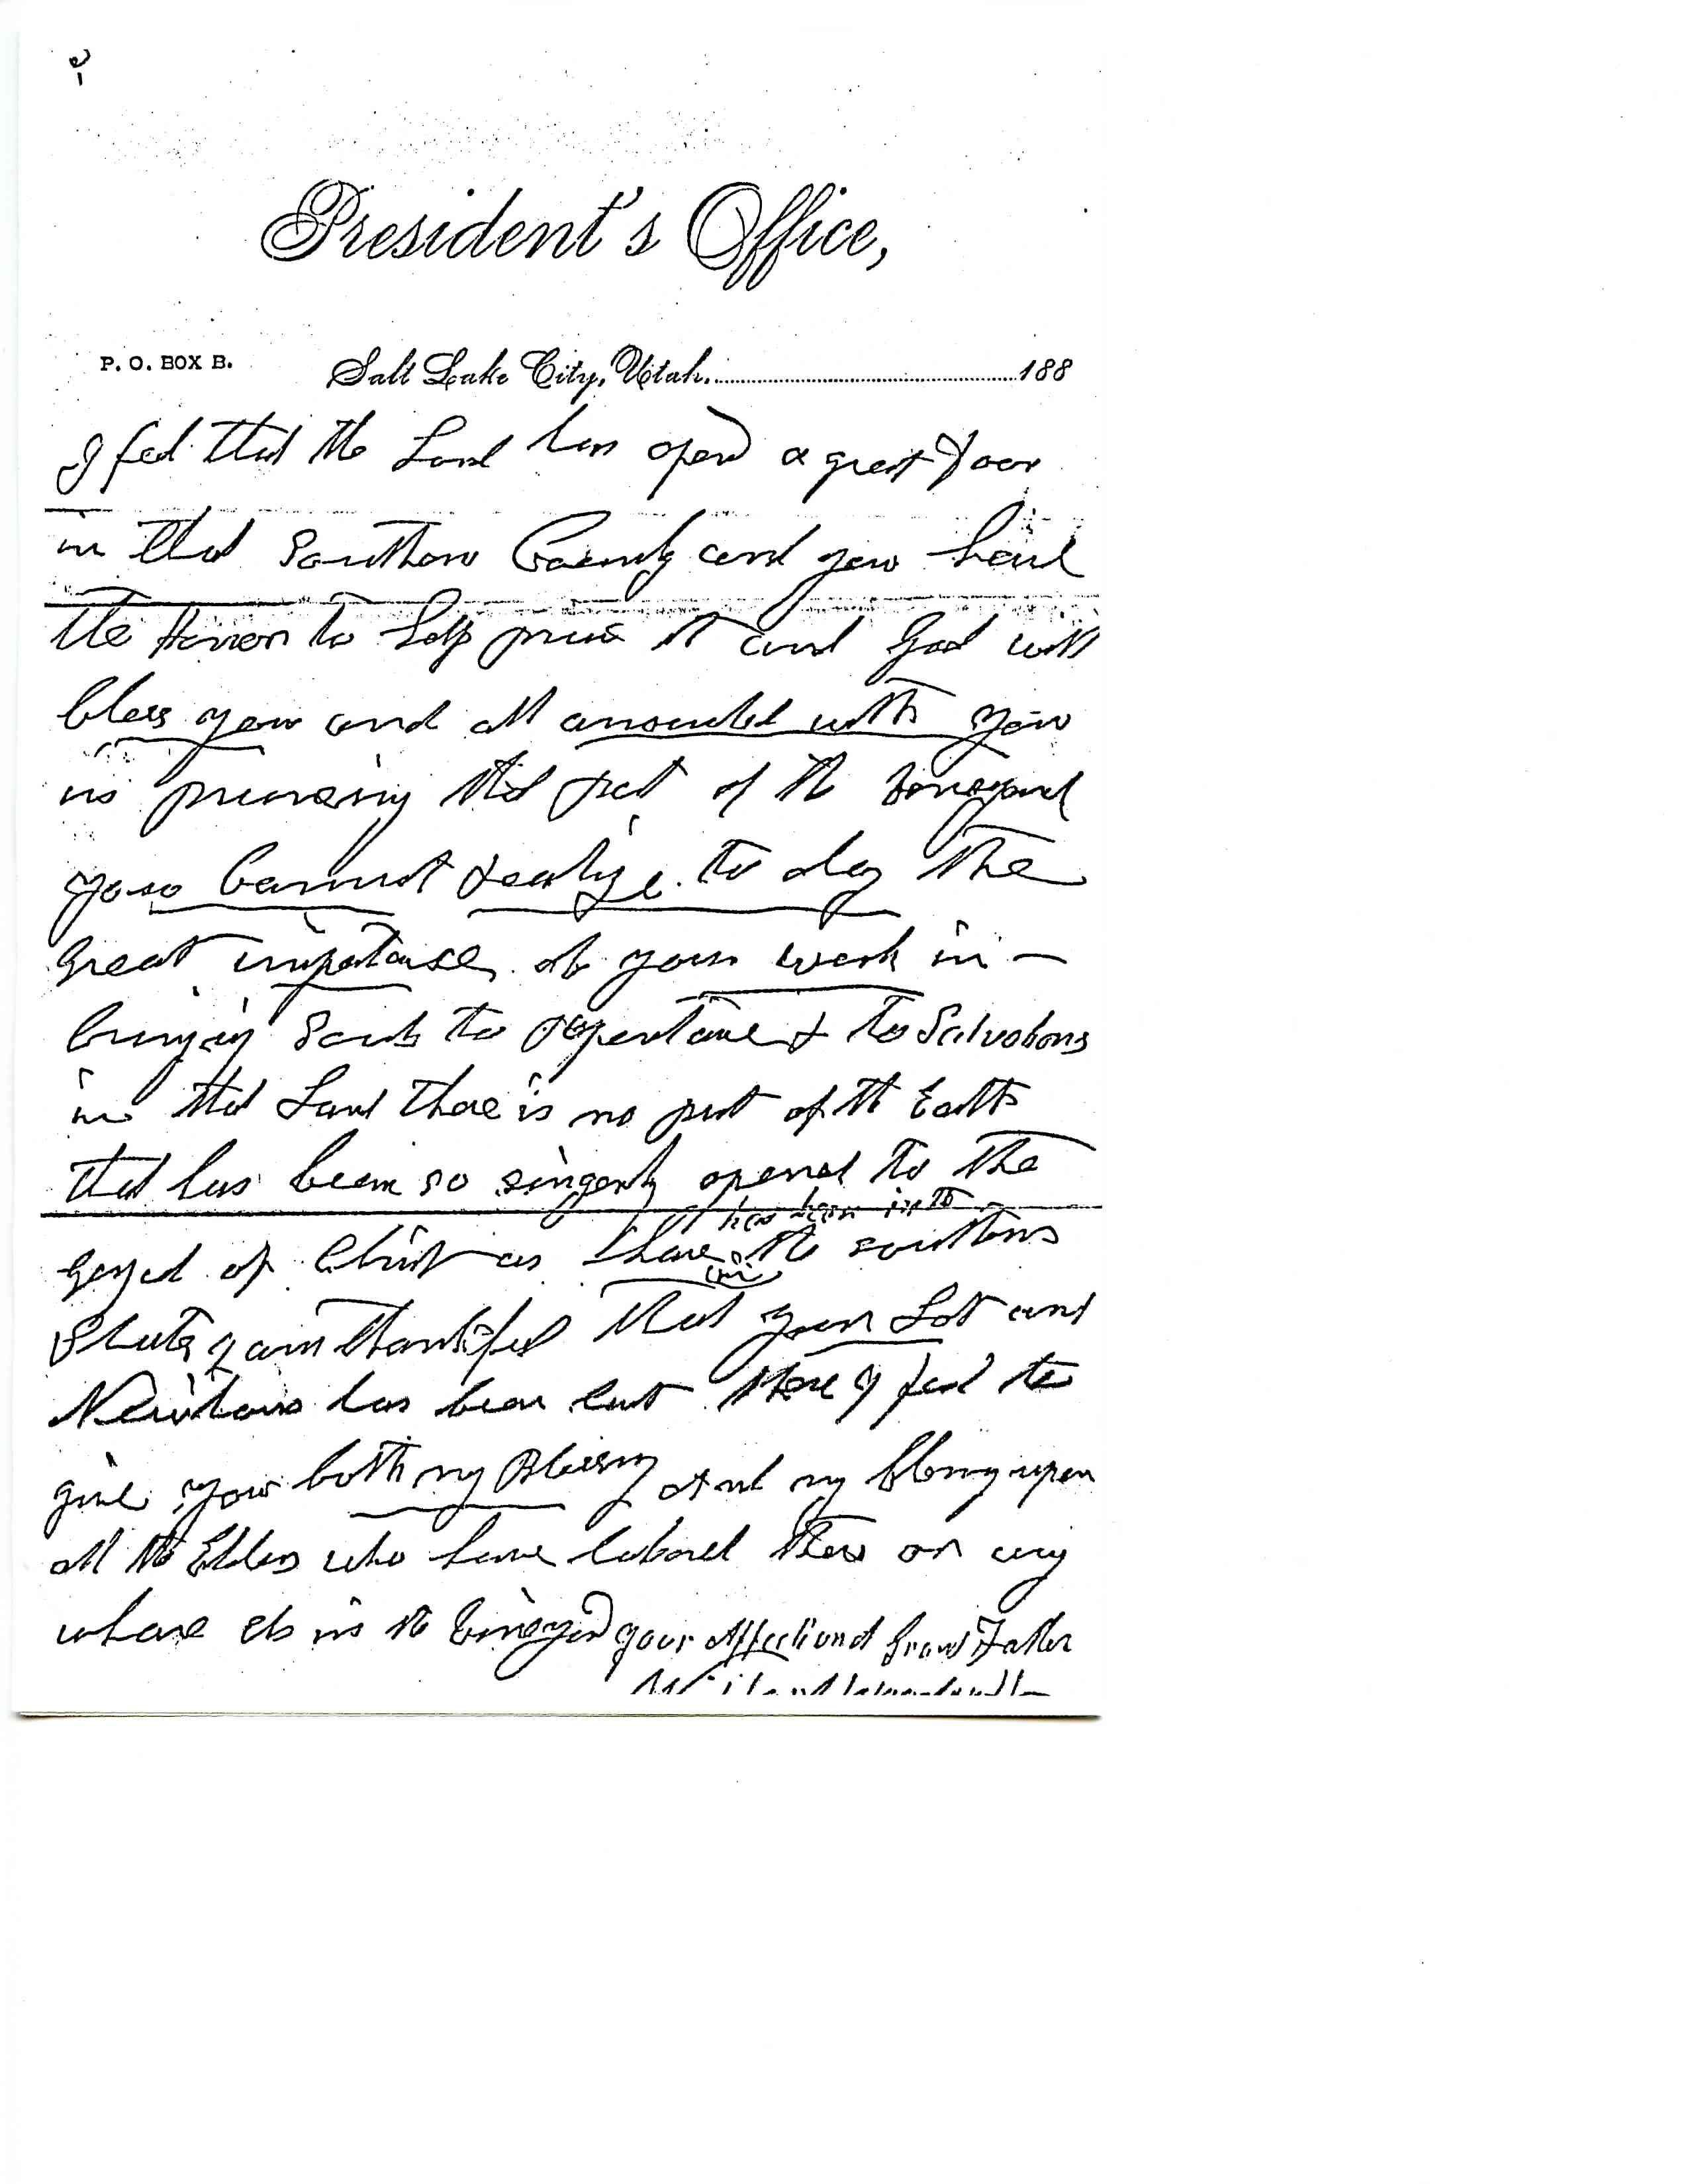 President's Office,
P. O. BOX B. Salt Lake City, Utah. 188
I feel that the Lord has opend a great Door
in that Southern County and you have
the Honor to help prune it and God will
bless you and all associated with you
in pruning that part of the vineyard
you Cannot realize to day the
great importance of your work in
bringing Souls to repentance & to Salvations
in that Land there is no part of the Earth
that has been so singerly opened to the
has been in the
gospel of Christ as there in the southern
States I am thankful that your Lot and
Newtons has been cast there I feel to
give you both my Blessing and my blessing upon
all the Elders who have labored there or any
whare els in the vineyard your Affectionat Grand Father